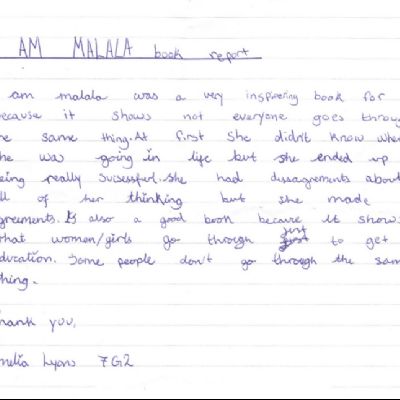 AM MALALA book report
am malala was a very inspireing book for
ecause it shows not everyone goes throug
he same thing. At first she didn't know wher
he was going in life but she ended up
eing really sucsessful. She had dissagrements about
ll of her thinking but she made
greements. Is also a good book becaue it show
what women/girls go through just to get
ducation. Some people don't go through the sam
thing.
hank you,
melia Lyons 7G2